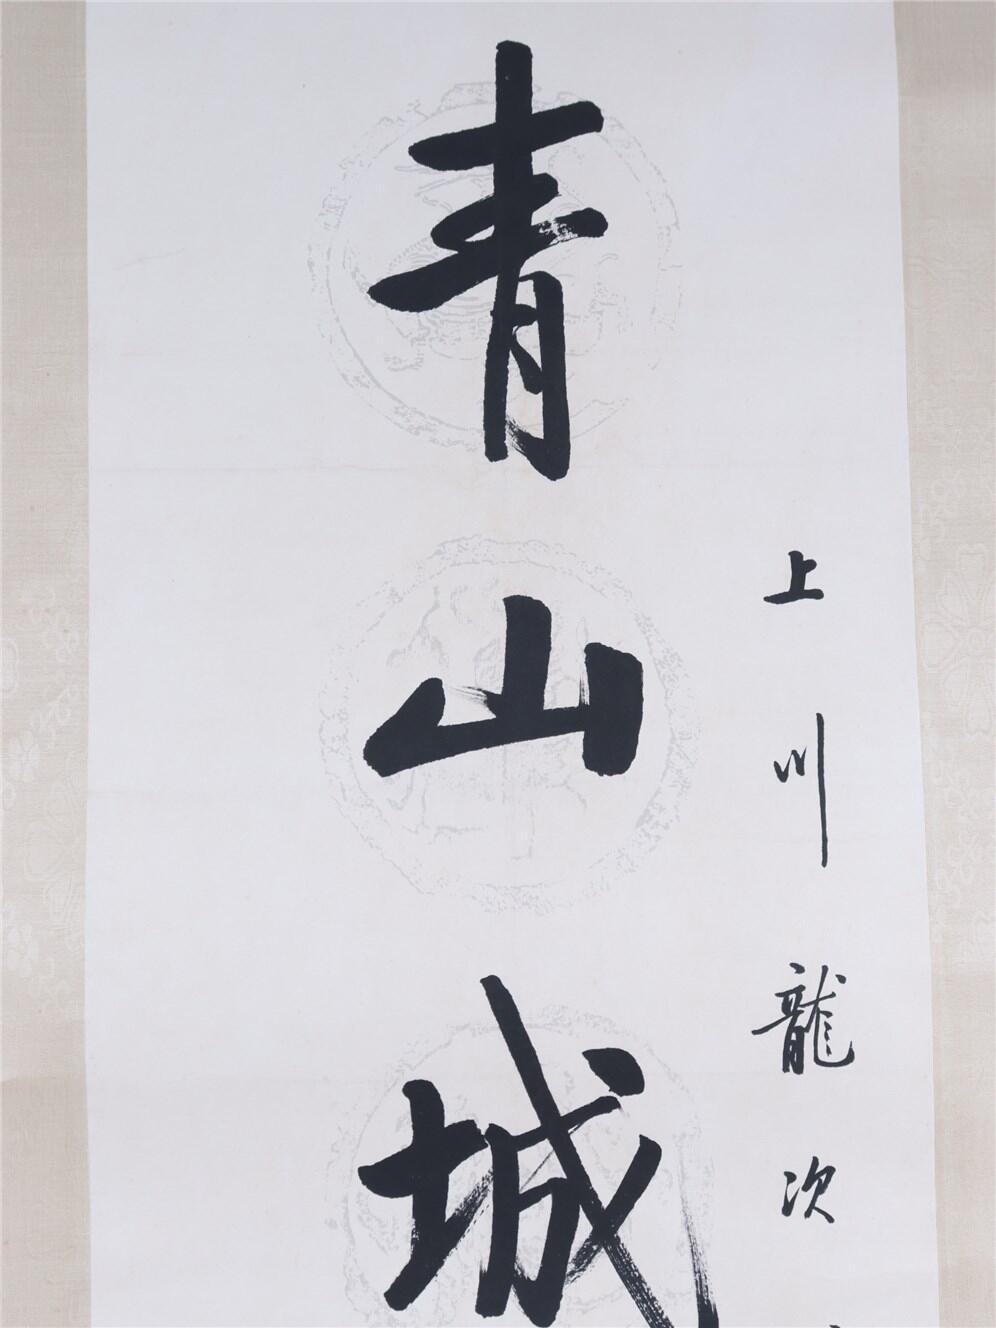 上川龍次
青山城